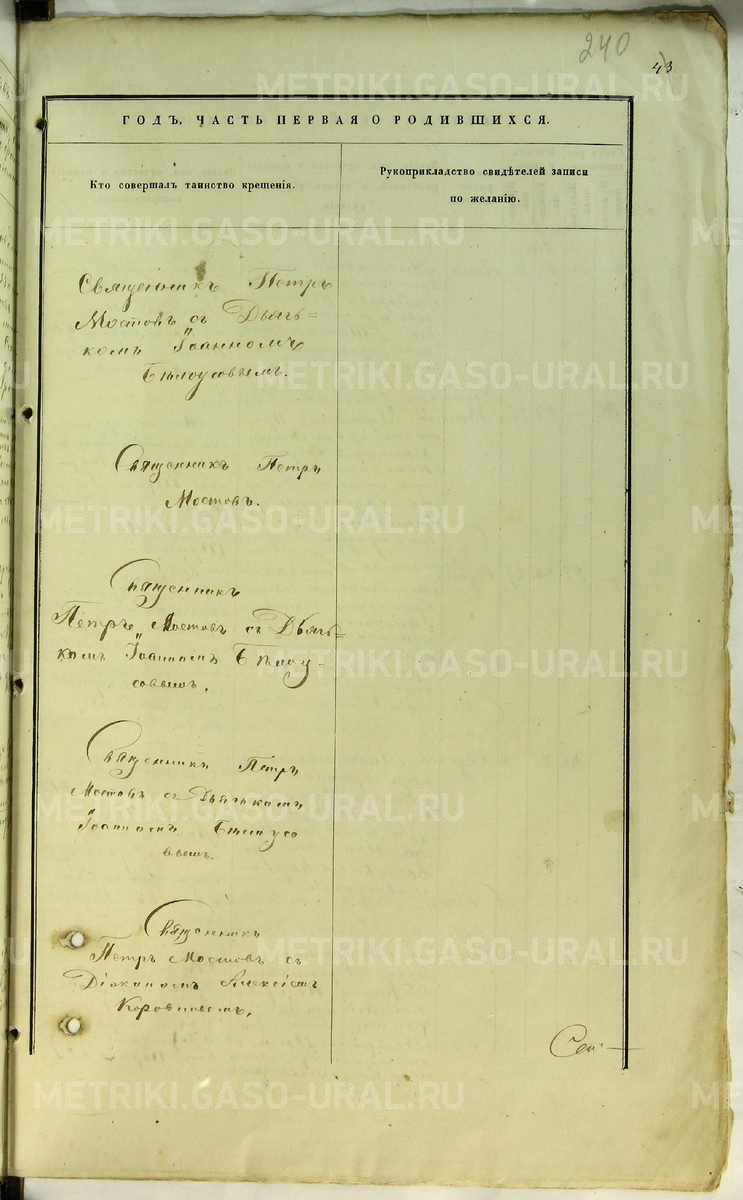 240
43
ГОДЪ, ЧАСТЬ ПЕРВАЯ О РОДИВШИХСЯ.
Кто совершалъ таинство крещенія.
Рукоприкладство свидѣтелей записи
по желанію.
Священникъ Петръ
Мостовъ съ Дьячь=
комъ Іоанномъ
Бѣлоусовымъ.
Священникъ Петръ
Мостовъ.
Священникъ
Петръ Мостовъ съ Дьячь=
комъ Іоанномъ Бѣлоу-
совымъ.
Священникъ Петръ
Мостовъ съ Дьячькомъ
Іоанномъ Бѣлоусо
вымъ.
Священникъ
Петръ Мостовъ съ
Діакономъ Алексіемъ
METRIKI.GASO-URAL.RU